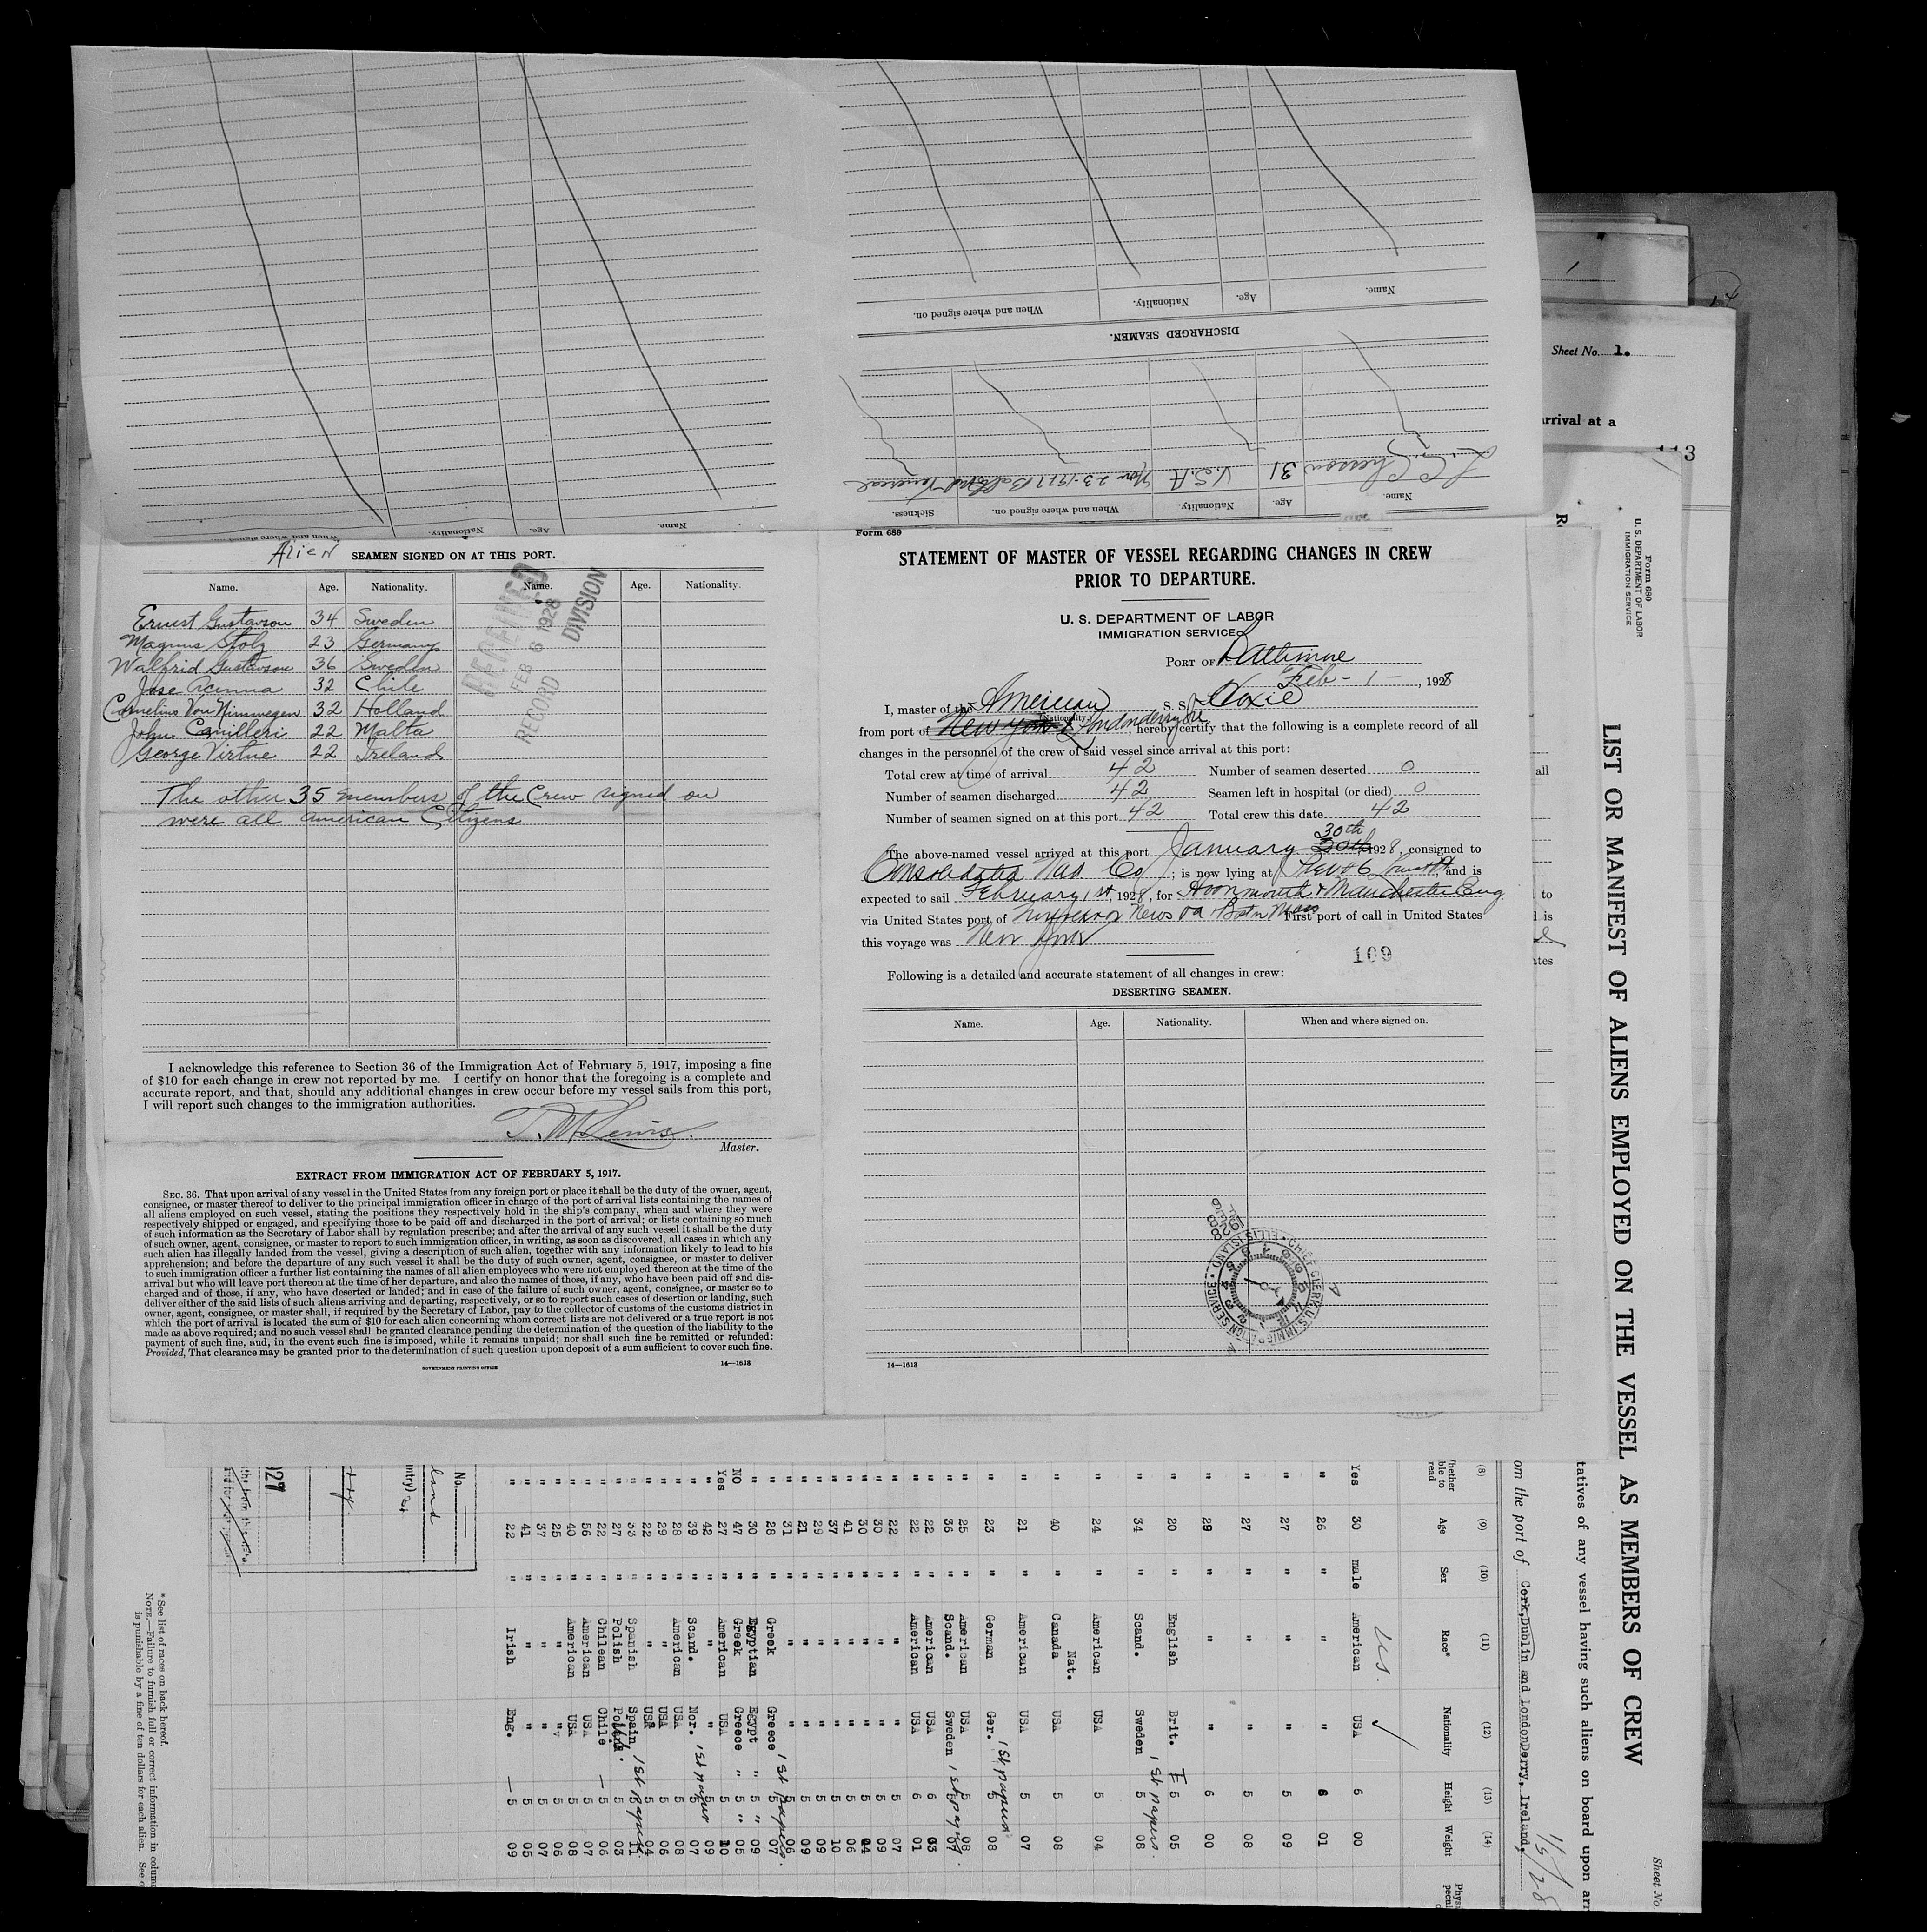 Name. Age. Nationality. When and where signed on.
DISCHARGED SEAMEN.
Name. Age. Nationality. When and where signed on. Sickness.
31 U.S.A. Nov 23-1927
Name. Age. Nationality. When and where signed on.
Alien SEAMEN SIGNED ON AT THIS PORT.
Name. Age. Nationality. Name. Age. Nationality.
Ernest Gustavson 34 Sweden
Magnus Stolz 23 Germany
Walfrid Gustavson 36 Sweden
Jose Acinna 32 Chile
Cornelius Van Nimwegen 32 Holland
John Camilleri 22 Malta
George Virtue 22 Ireland
The other 35 members of the Crew signed on
were all American Citizens
RECEIVED
FEB 6 1928
RECORD DIVISION
I acknowledge this reference to Section 36 of the Immigration Act of February 5, 1917, imposing a fine
of $10 for each change in crew not reported by me. I certify on honor that the foregoing is a complete and
accurate report, and that, should any additional changes in crew occur before my vessel sails from this port,
I will report such changes to the immigration authorities.
Lewis.
Master.
EXTRACT FROM IMMIGRATION ACT OF FEBRUARY 5, 1917.
SEC. 36. That upon arrival of any vessel in the United States from any foreign port or place it shall be the duty of the owner, agent,
consignee, or master thereof to deliver to the principal immigration officer in charge of the port of arrival lists containing the names of
all aliens employed on such vessel, stating the positions they respectively hold in the ship's company, when and where they were
respectively shipped or engaged, and specifying those to be paid off and discharged in the port of arrival; or lists containing so much
of such information as the Secretary of Labor shall by regulation prescribe; and after the arrival of any such vessel it shall be the duty
of such owner, agent, consignee, or master to report to such immigration officer, in writing, as soon as discovered, all cases in which any
such alien has illegally landed from the vessel, giving a description of such alien, together with any information likely to lead to his
apprehension; and before the departure of any such vessel it shall be the duty of such owner, agent, consignee, or master to deliver
to such immigration officer a further list containing the names of all alien employees who were not employed thereon at the time of the
arrival but who will leave port thereon at the time of her departure, and also the names of those, if any, who have been paid off and dis-
charged and of those, if any, who have deserted or landed; and in case of the failure of such owner, agent, consignee, or master so to
deliver either of the said lists of such aliens arriving and departing, respectively, or so to report such cases of desertion or landing, such
owner, agent, consignee, or master shall, if required by the Secretary of Labor, pay to the collector of customs of the customs district in
which the port of arrival is located the sum of $10 for each alien concerning whom correct lists are not delivered or a true report is not
made as above required; and no such vessel shall be granted clearance pending the determination of the question of the liability to the
payment of such fine, and, in the event such fine is imposed, while it remains unpaid; nor shall such fine be remitted or refunded:
Provided, That clearance may be granted prior to the determination of such question upon deposit of a sum sufficient to cover such fine.
GOVERNMENT PRINTING OFFICE 14—1613
Form 689
STATEMENT OF MASTER OF VESSEL REGARDING CHANGES IN CREW
PRIOR TO DEPARTURE.
U. S. DEPARTMENT OF LABOR
IMMIGRATION SERVICE
PORT OF Baltimore
Feb - 1 - , 1928
I, master of the American S. S. Hoxie
(Nationality)
from port of New York Londonderry Ire, hereby certify that the following is a complete record of all
changes in the personnel of the crew of said vessel since arrival at this port:
Total crew at time of arrival 42 Number of seamen deserted 0
Number of seamen discharged 42 Seamen left in hospital (or died) 0
Number of seamen signed on at this port 42 Total crew this date 42
30th
The above-named vessel arrived at this port January 30th 1928, consigned to
Consolidated Nav Co; is now lying at Pier 6 and is
expected to sail February 1st, 1928, for Avonmouth & Manchester Eng
via United States port of Newport News Va & Bstn Mass First port of call in United States
this voyage was New York
109
Following is a detailed and accurate statement of all changes in crew:
DESERTING SEAMEN.
Name. Age. Nationality. When and where signed on.
1928
14—1613
Sheet No. 1.
arrival at a
Form 680
U. S. DEPARTMENT OF LABOR
IMMIGRATION SERVICE
LIST OR MANIFEST OF ALIENS EMPLOYED ON THE VESSEL AS MEMBERS OF CREW
Sheet No.
tatives of any vessel having such aliens on board upon arr
om the port of Cork,Dublin and LondonDerry, Ireland, 1/5/28
(8) (9) (10) (11) (12) (13) (14)
Age Sex Race* Nationality Height Weight
U.S.
Yes 30 male American USA 6 00
" 26 " " " 6 01
" 27 " " " 5 09
" 27 " " " 5 08
" 29 " " " 6 00
" 20 " English Brit. 5 05
" 34 " Scand. Sweden 1st papers 5 08
" 24 " American USA 5 04
" 40 " Nat. Canada USA 5 08
" 21 " American USA 5 07
" 23 " German Ger. 1st papers 5 08
" 25 " American USA 5 08
" 36 " Scand. Sweden 1st papers 5 07
" 22 " American USA 6 03
" 22 " American USA 6 01
" 22 " " " 5 07
" 30 " " " 5 09
" 30 " " " 5 04
" 41 " " " 5 06
" 37 " " " 5 10
" 29 " " " 5 09
" 21 " " " 5 09
" 31 " " " 5 06
" 28 " Greek Greece 1st papers 5 07
" 30 " Egyptian Egypt " 5 09
NO 47 " Greek Greece " 5 05
Yes 27 " American USA 5 10
" 42 " " " 5 09
" 39 " Scand. Nor. 1st papers 5 07
" 28 " American USA 5 08
" 29 " " USA 5 06
" 22 " " USA 5 04
" 33 " Spanish Spain 1st papers 5 11
" 27 " Polish 5 03
" 22 " Chilean Chile — 5 06
" 56 " American USA 5 07
" 40 " American USA 5 08
" 25 " " " 5 06
" 37 " " " 5 07
" 41 " " " 5 05
" 22 " Irish Eng. — 5 09
* See list of races on back hereof.
NOTE.—Failure to furnish full or correct information in column
is punishable by a fine of ten dollars for each alien. See